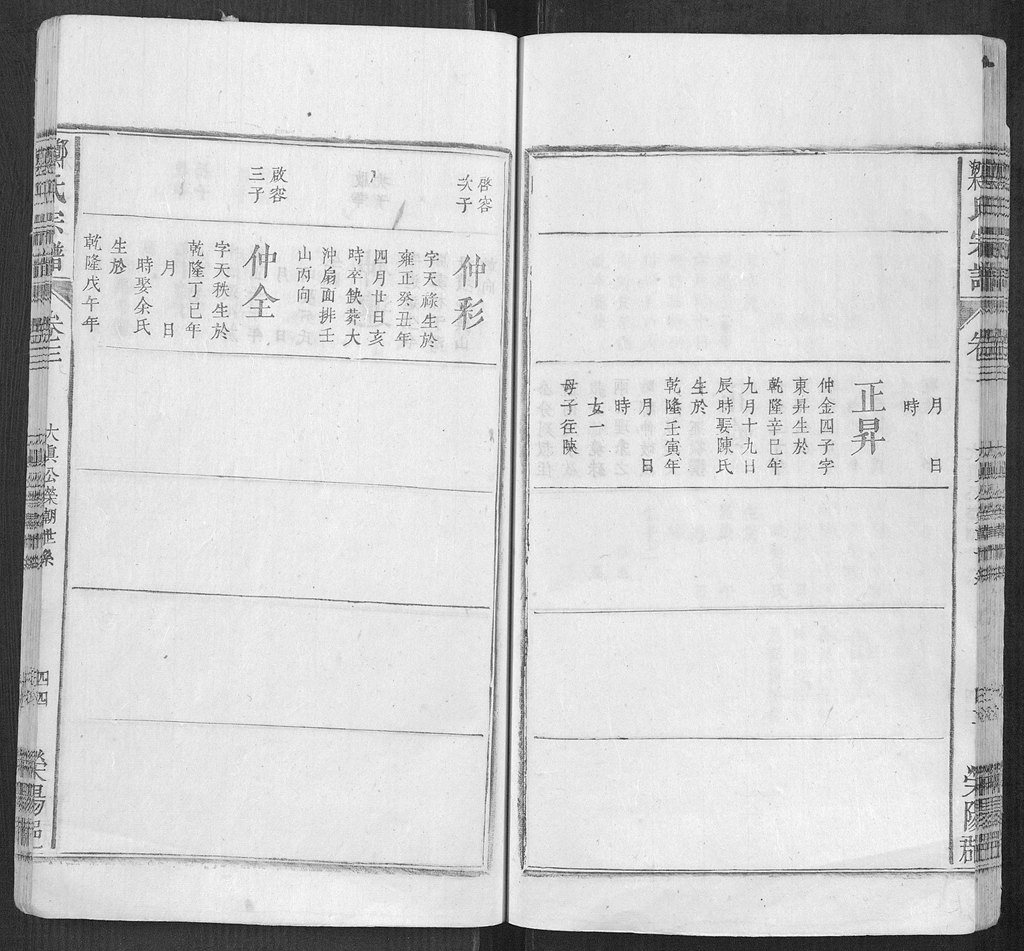 月　日
時
正昇
仲金四子字
東昇生於
乾隆辛巳年
九月十九日
辰時娶陳氏
生於
乾隆壬寅年
月　日
時
女一
母子往陝
啓容
次子
仲彩
字天祿生於
雍正癸丑年
四月廿日亥
時卒缺葬大
沖扇面排壬
山丙向
啟容
三子
仲全
字天秩生於
乾隆丁巳年
月　日
時娶余氏
生於
乾隆戊午年
鄭氏宗譜
卷三
大眞公榮朝世系
四四